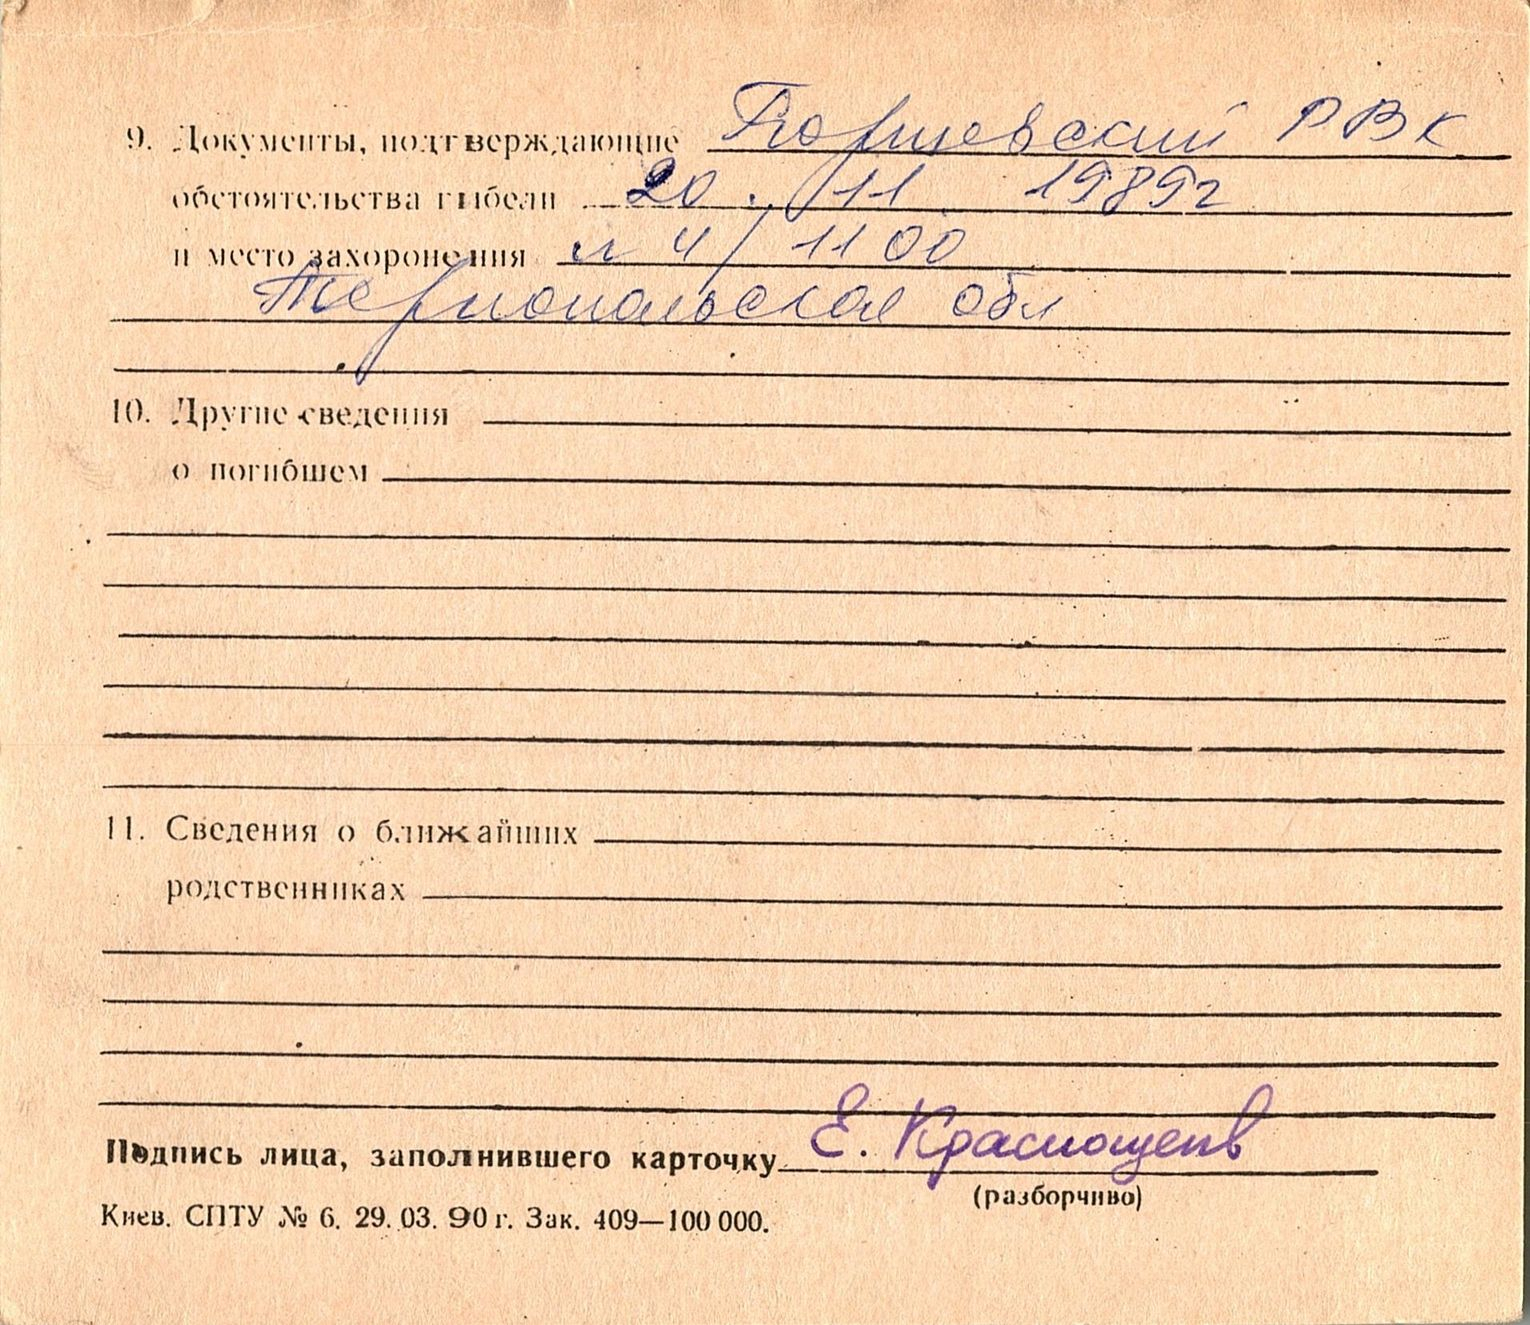 9. Документы, подтверждающие Борщевский РВК
обстоятельства гибели 20. 11 1989г
и место захоронения н 4/1100
Тернопольская обл
10. Другие сведения
о погибшем
11. Сведения о ближайших
родственниках
Подпись лица, заполнившего карточку Е. Краснощеков
(разборчиво)
Киев. СПТУ № 6. 29. 03. 90 г. Зак. 409—100 000.